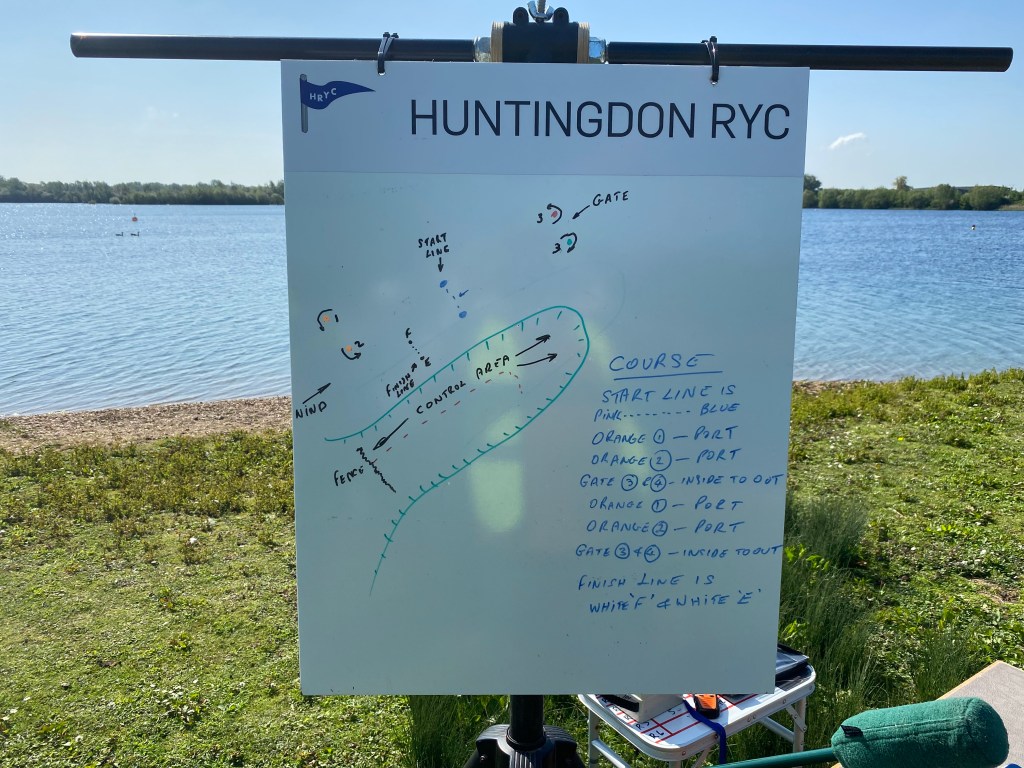 HRYC
HUNTINGDON RYC
3
GATE
3
START
LINE
1
2
F
E
FINISH
LINE
CONTROL AREA
WIND
FENCE
COURSE
START LINE IS
PINK -------- BLUE
ORANGE ① — PORT
ORANGE ② — PORT
GATE ③ & ④ - INSIDE TO OUT
ORANGE ① — PORT
ORANGE ② — PORT
GATE ③ & ④ — INSIDE TO OUT
FINISH LINE IS
WHITE 'F' & WHITE 'E'